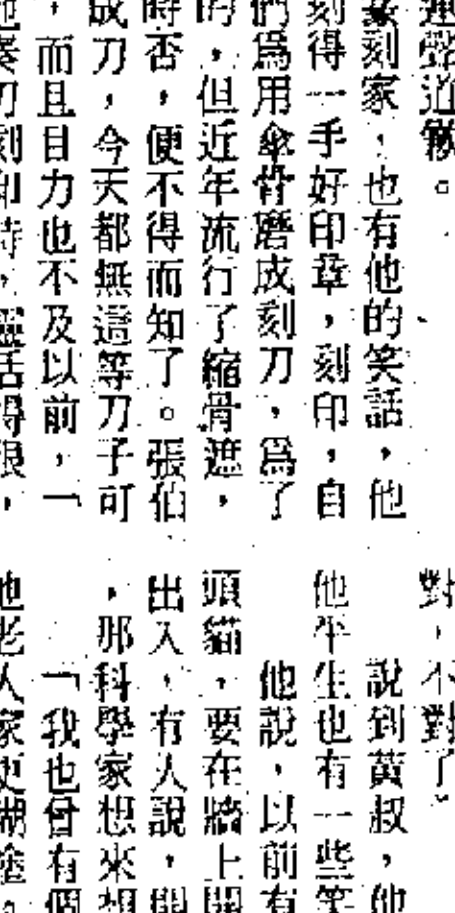 連聲道歉。
篆刻家，也有他的笑話，他
刻得一手好印章，刻印，自
們爲用傘骨磨成刻刀，爲了
的，但近年流行了縮骨遮，
時否，便不得而知了。張伯
成刀，今天都無這等刀子可
，而且目力也不及以前，一
刻印時，靈活得很，
對，不對了
說到黃叔，他
他平生也有一些笑
他說，以前有
頭貓，要在牆上開
出入，有人說，開
，那科學家想來想
「我也曾有個
他老人家更糊塗。